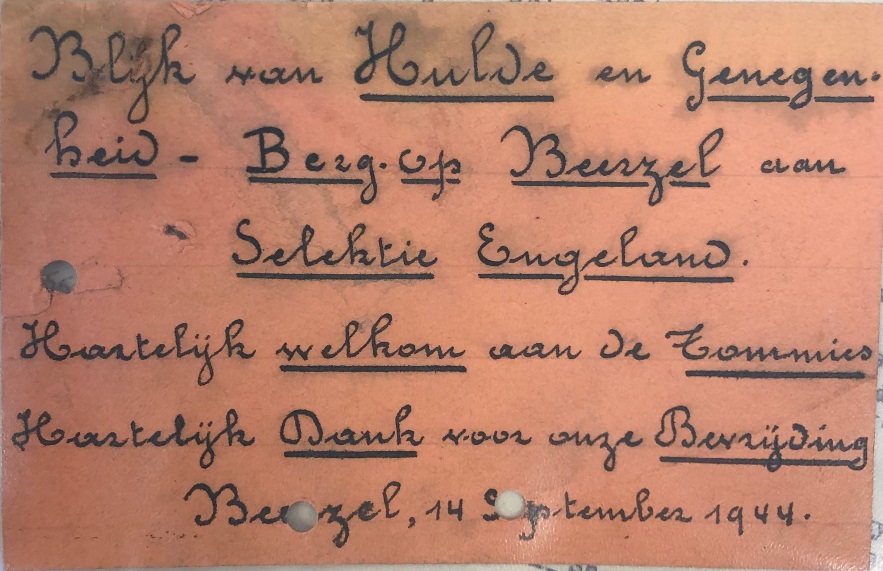 Blijk van Hulde en Genegen-
heid - Berg. op Beerzel aan
Selektie Engeland.
Hartelijk welkom aan de Tommies
Hartelijk Dank voor onze Bevrijding
Beerzel, 14 September 1944.